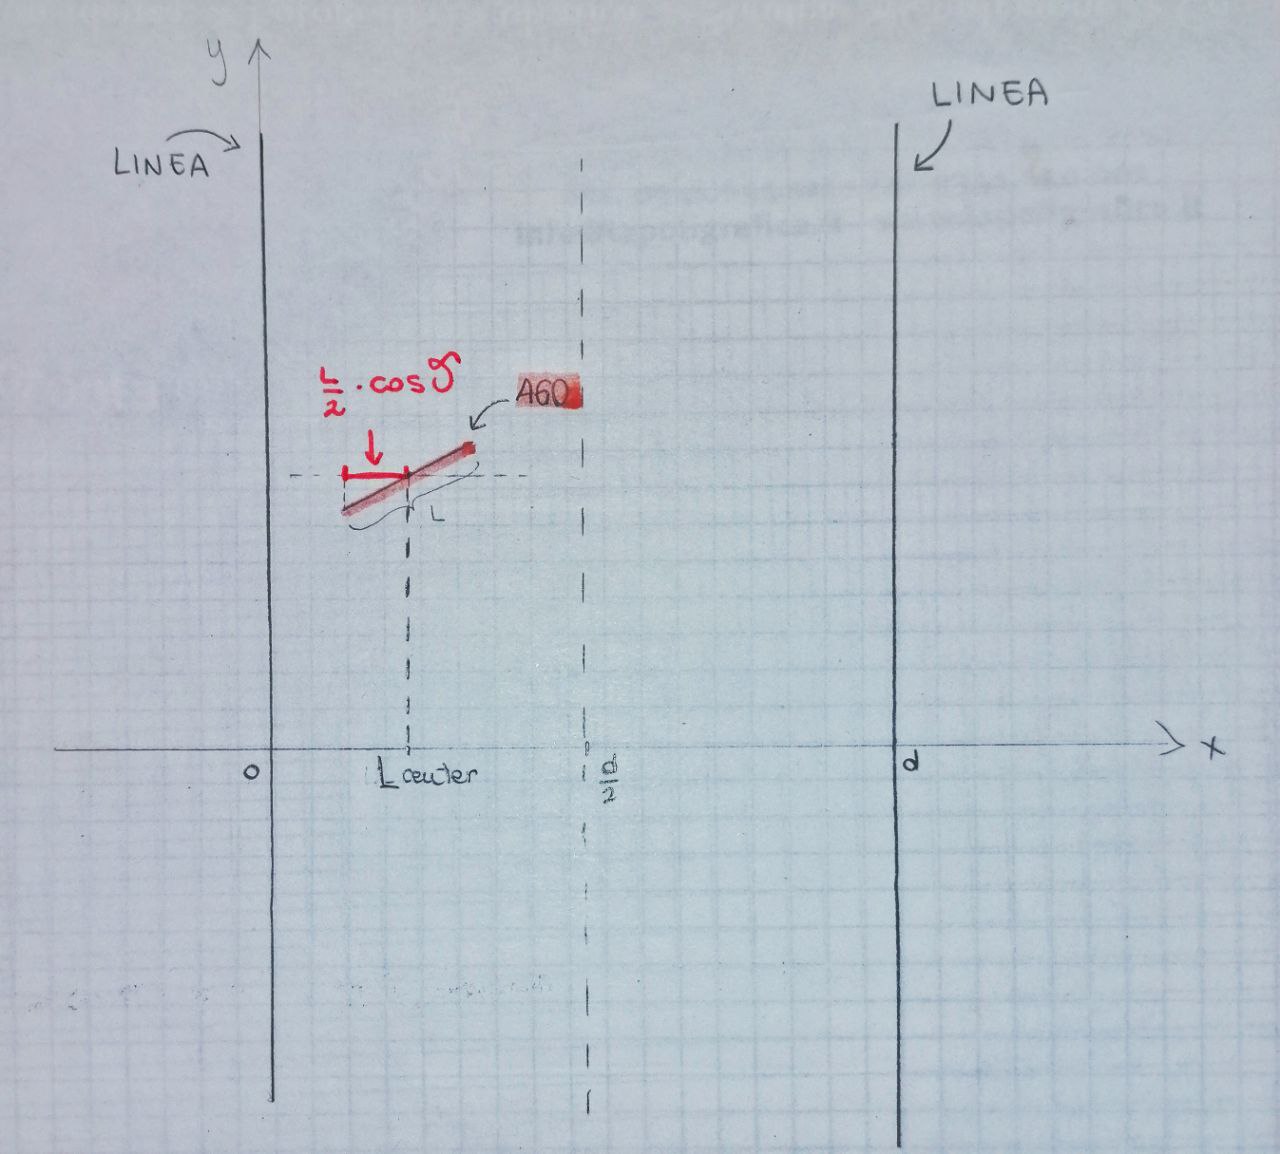 y
LINEA
LINEA
L/2 · cos ϑ
AGO
L
x
0
Lcenter
d/2
d